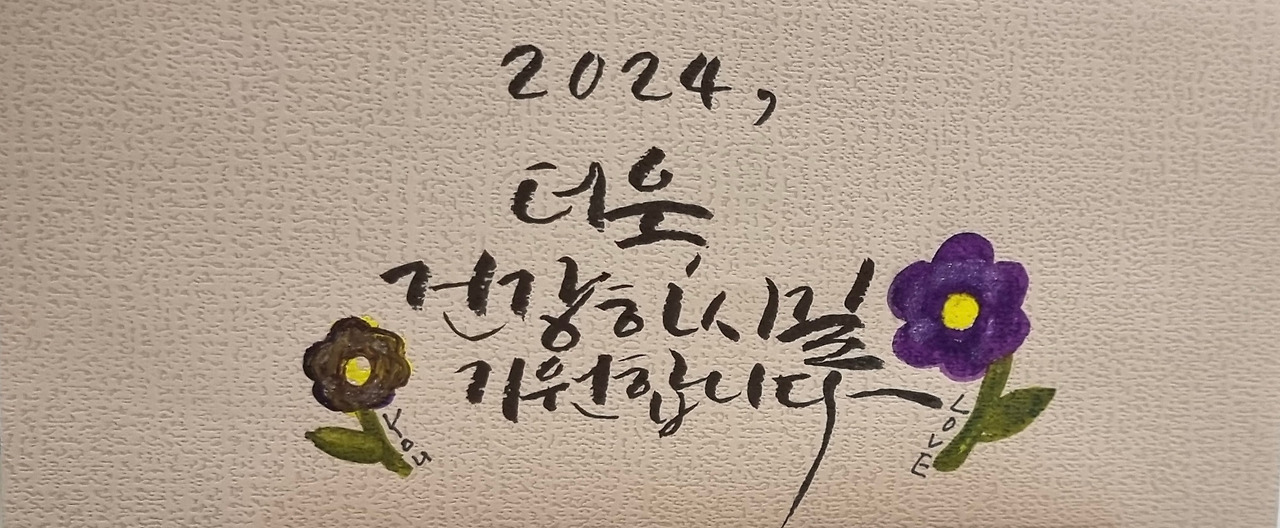 2024,
더욱,
건강하시길
기원합니다
YOU
LOVE